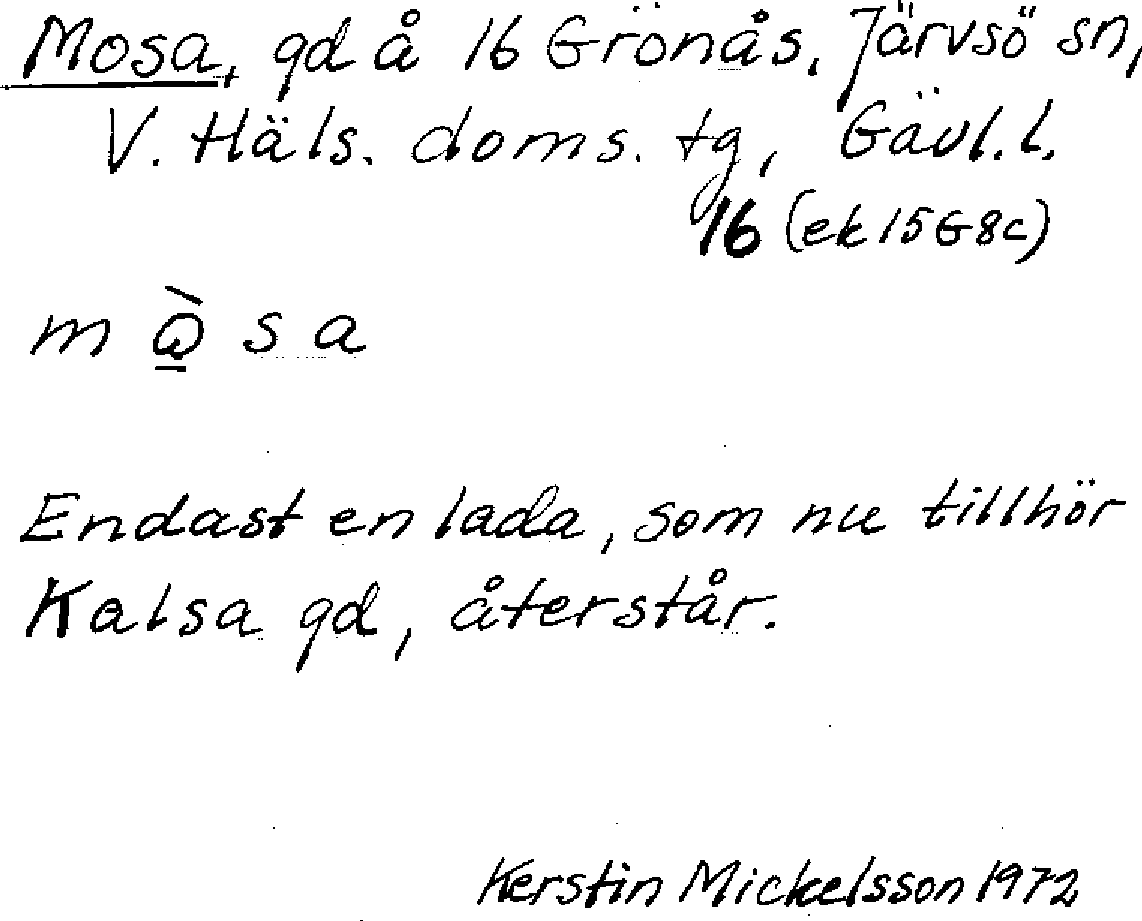 Mosa, gd å 16 Grönås, Järvsö sn,
V. Häls. doms. tg, Gävl. l.
16 (ek 15G8c)
m s a
Endast en lada, som nu tillhör
Kalsa gd, återstår.
Kerstin Mickelsson 1972